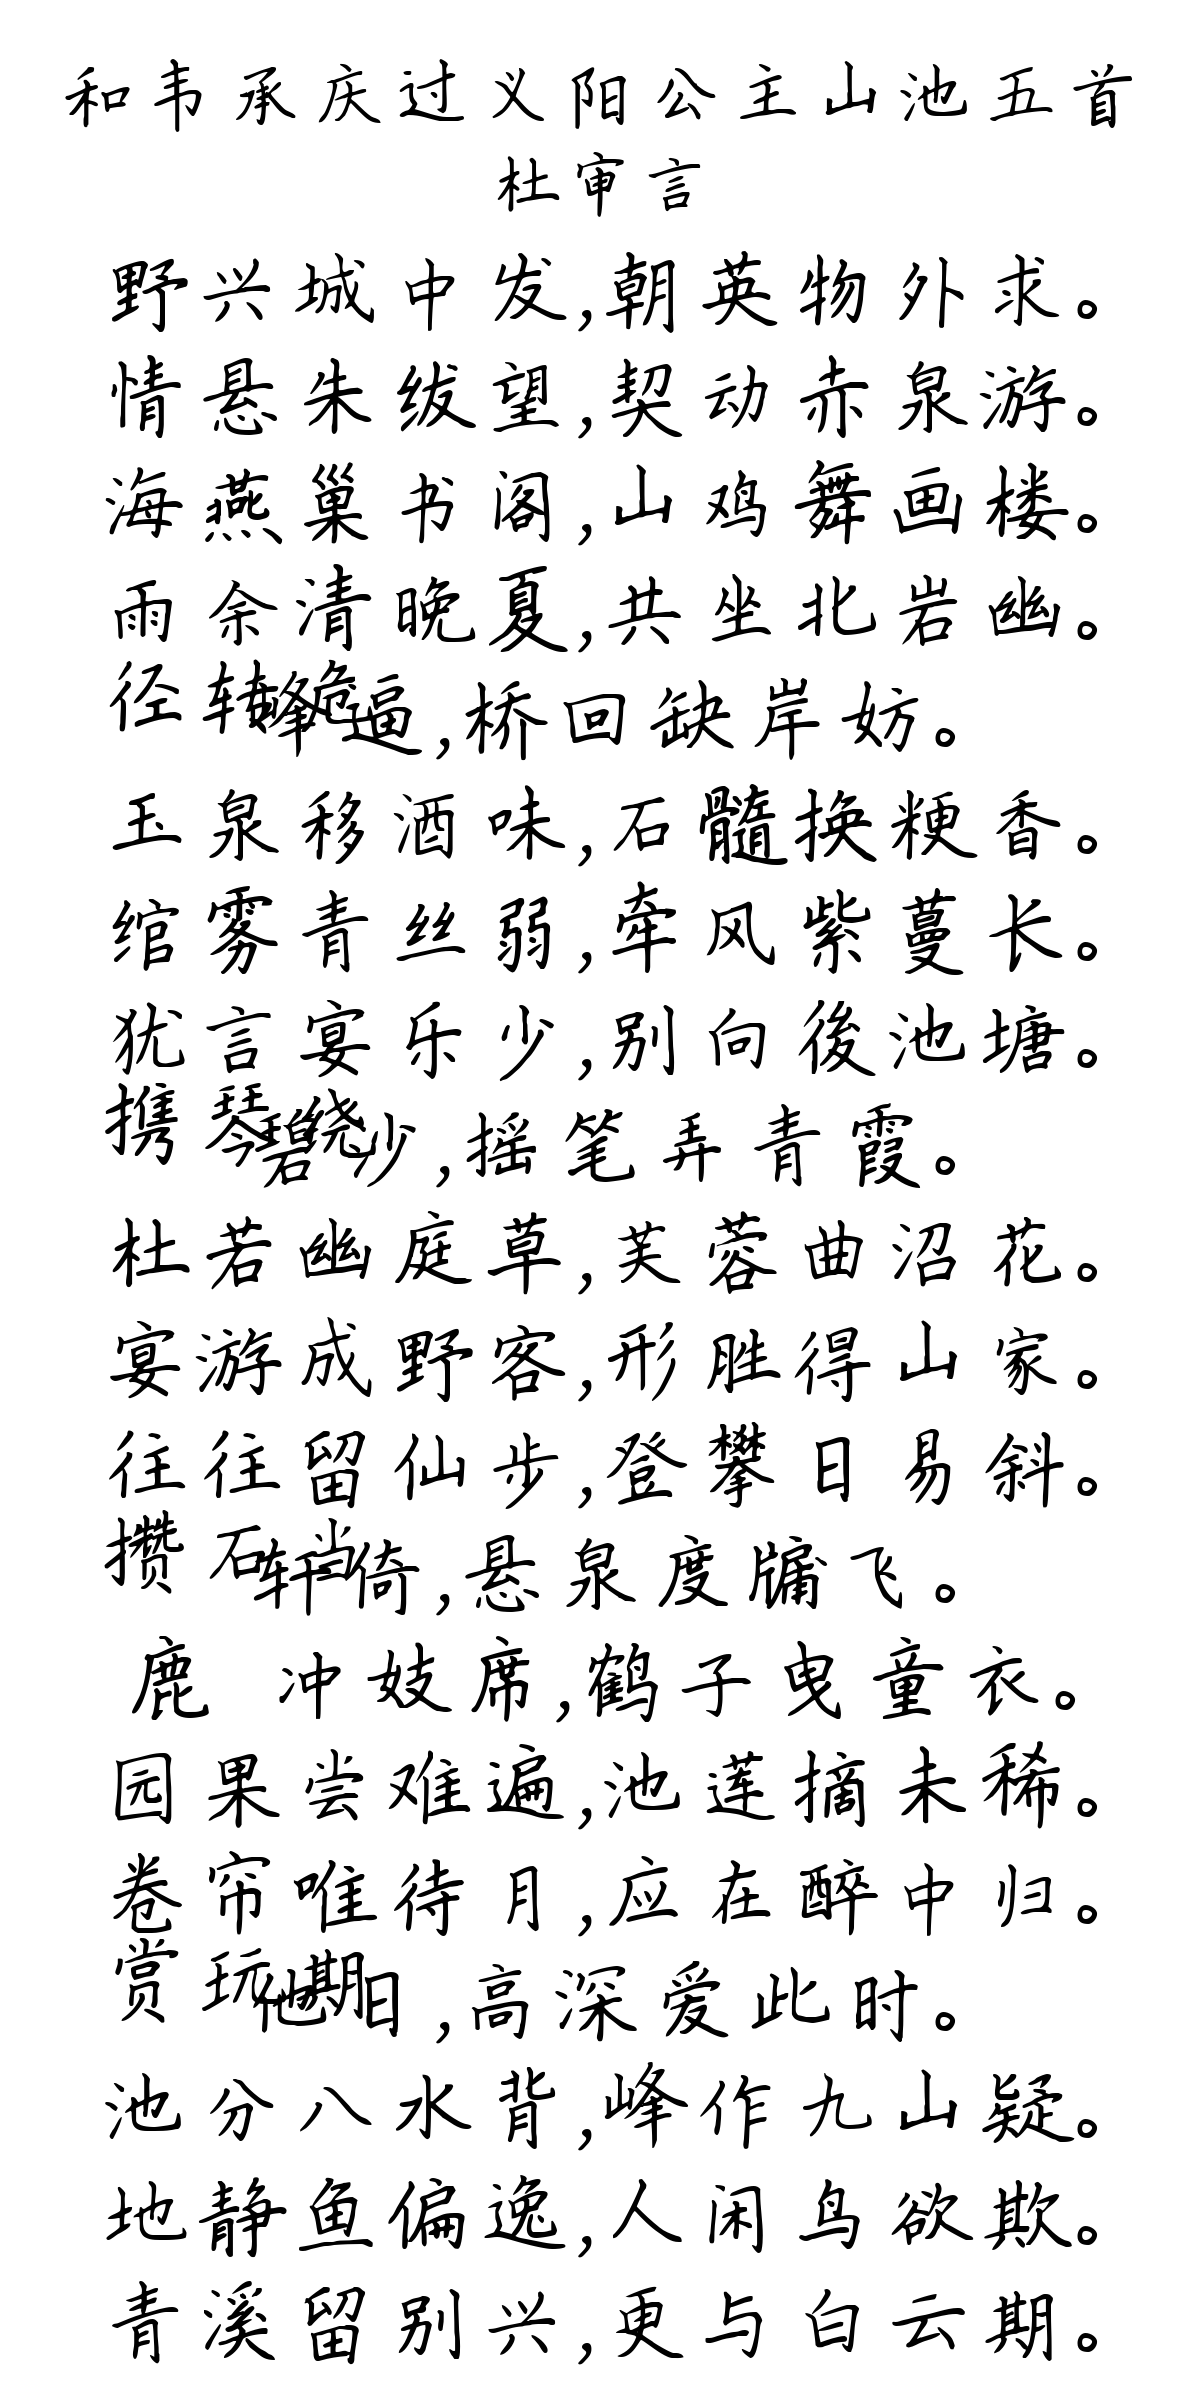 和韦承庆过义阳公主山池五首
杜审言
野兴城中发,朝英物外求。
情悬朱绂望,契动赤泉游。
海燕巢书阁,山鸡舞画楼。
雨余清晚夏,共坐北岩幽。
径转危峰逼,桥回缺岸妨。
玉泉移酒味,石髓换粳香。
绾雾青丝弱,牵风紫蔓长。
犹言宴乐少,别向後池塘。
携琴绕碧沙,摇笔弄青霞。
杜若幽庭草,芙蓉曲沼花。
宴游成野客,形胜得山家。
往往留仙步,登攀日易斜。
攒石当轩倚,悬泉度牖飞。
鹿 冲妓席,鹤子曳童衣。
园果尝难遍,池莲摘未稀。
卷帘唯待月,应在醉中归。
赏玩期他日,高深爱此时。
池分八水背,峰作九山疑。
地静鱼偏逸,人闲鸟欲欺。
青溪留别兴,更与白云期。